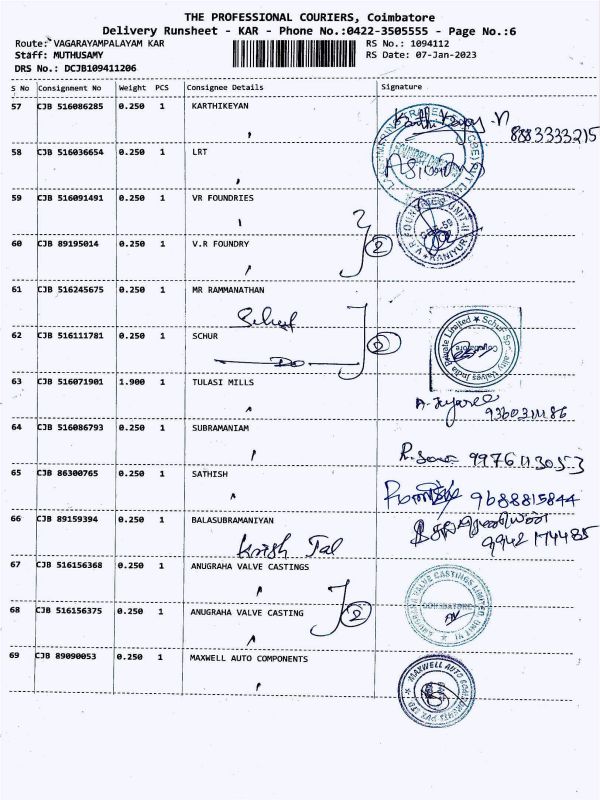 THE PROFESSIONAL COURIERS, Coimbatore
Delivery Runsheet - KAR - Phone No.:0422-3505555 - Page No.:6
Route: VAGARAYAMPALAYAM KAR RS No.: 1094112
Staff: MUTHUSAMY RS Date: 07-Jan-2023
DRS No.: DCJB109411206
S No Consignment No Weight PCS Consignee Details Signature
57 CJB 516086285 0.250 1 KARTHIKEYAN
8883333215
58 CJB 516036654 0.250 1 LRT
59 CJB 516091491 0.250 1 VR FOUNDRIES
V.R FOUNDRIES UNIT-II
KANIYUR
60 CJB 89195014 0.250 1 V.R FOUNDRY 2
61 CJB 516245675 0.250 1 MR RAMMANATHAN
Schuf
62 CJB 516111781 0.250 1 SCHUR
Do
Schuf Speciality Valves India Private Limited
Coimbatore
63 CJB 516071901 1.900 1 TULASI MILLS
64 CJB 516086793 0.250 1 SUBRAMANIAM
65 CJB 86300765 0.250 1 SATHISH
9688815844
66 CJB 89159394 0.250 1 BALASUBRAMANIYAN
9942174485
Krish Tal
67 CJB 516156368 0.250 1 ANUGRAHA VALVE CASTINGS
ANUGRAHA VALVE CASTINGS LIMITED UNIT VI
COIMBATORE
68 CJB 516156375 0.250 1 ANUGRAHA VALVE CASTING 2
69 CJB 89090053 0.250 1 MAXWELL AUTO COMPONENTS
MAXWELL AUTO COMPONENTS PVT LTD